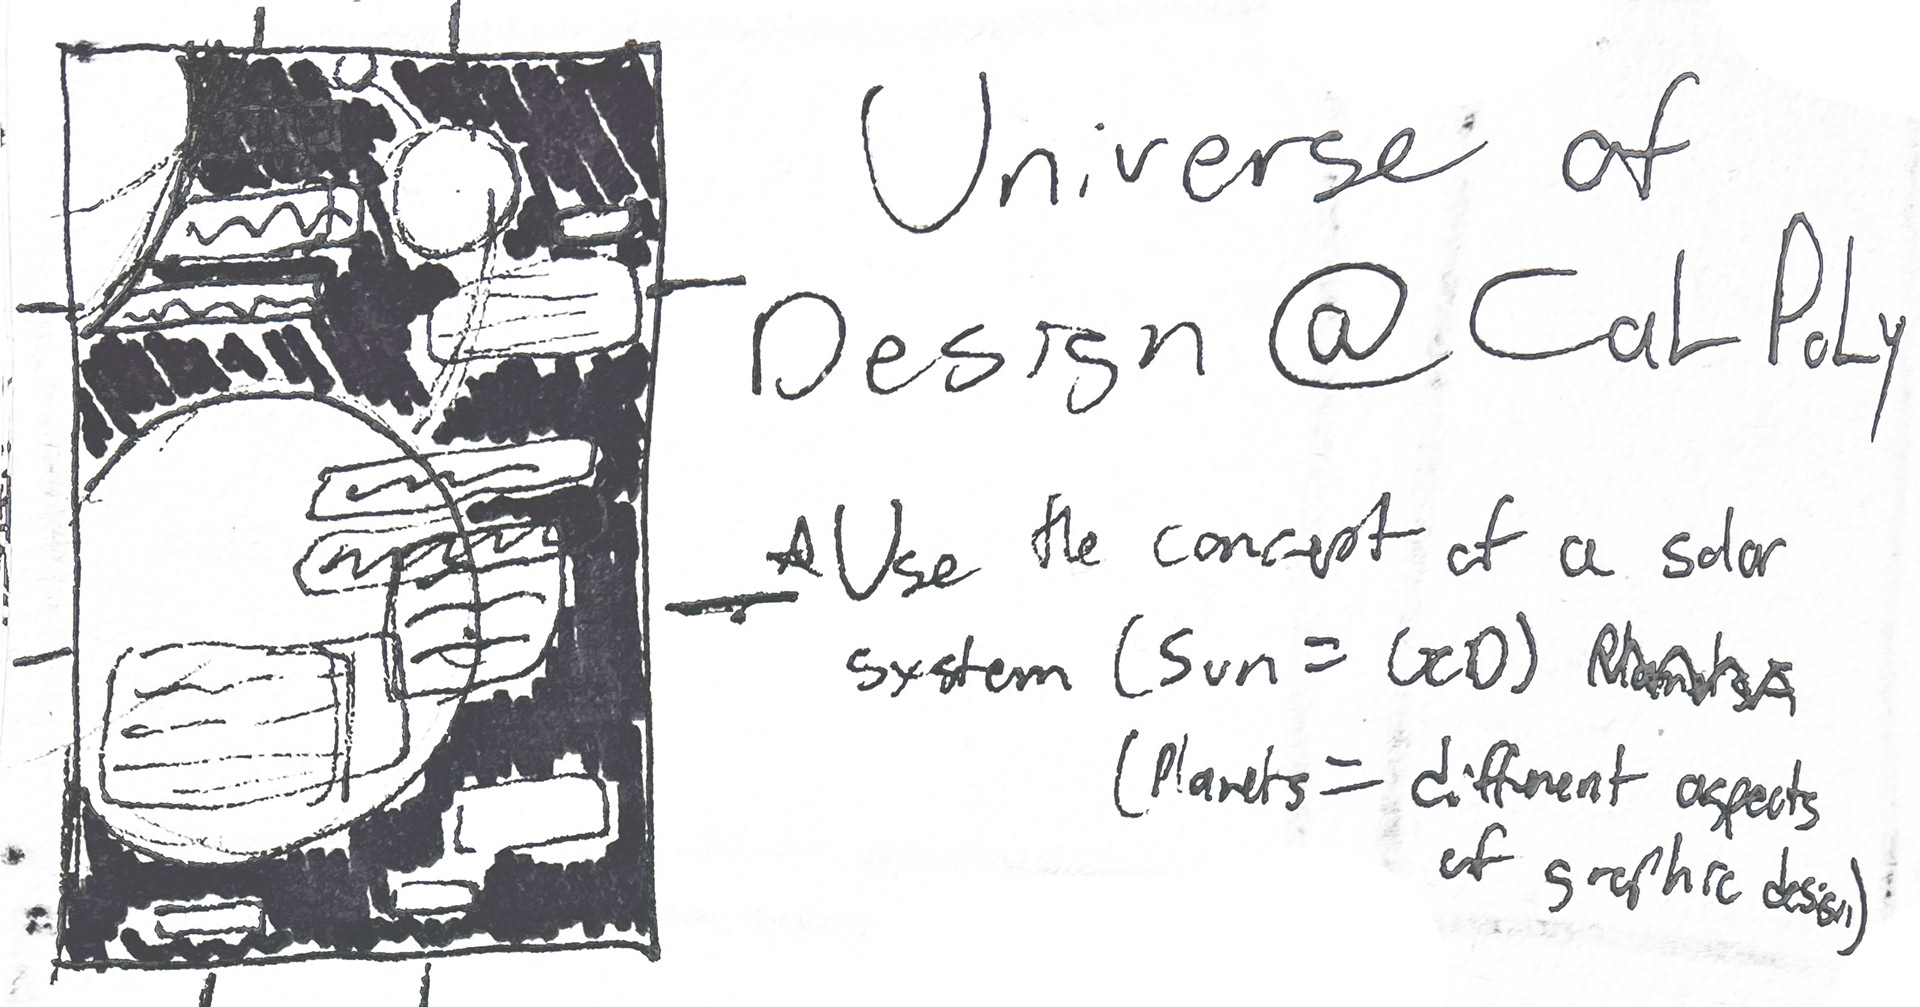 Universe of
Design @ Cal Poly
Use the concept of a solar
system (Sun = (xD)
(Planets = different aspects
of graphic design)